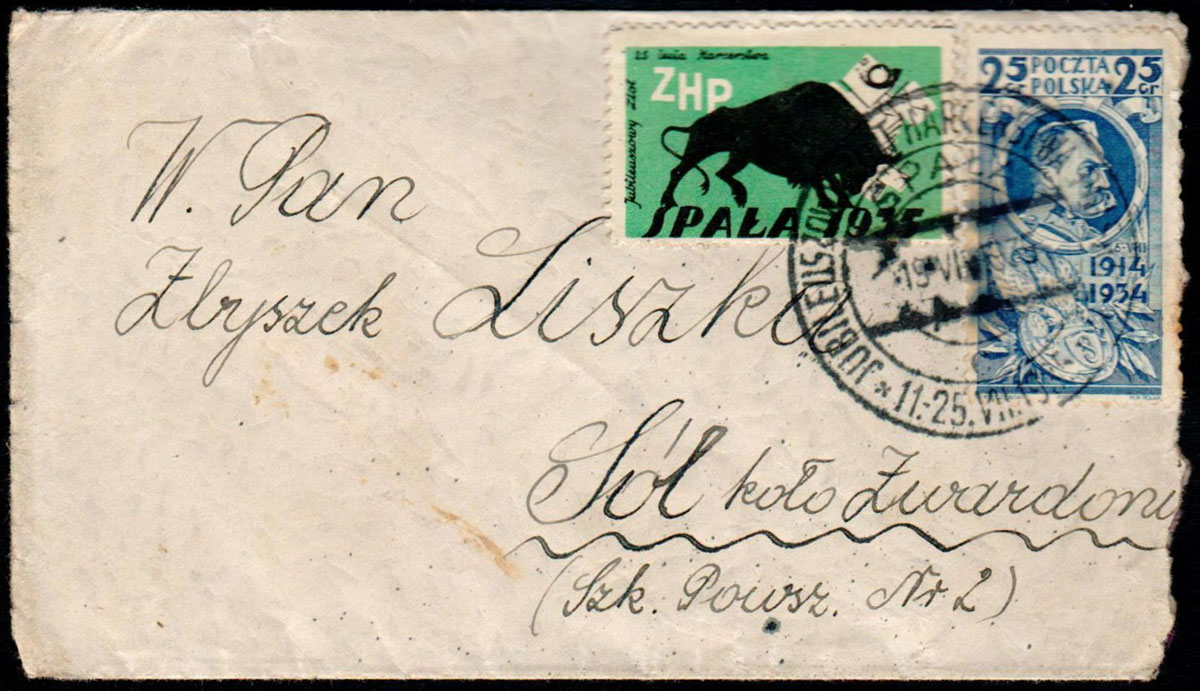 25 lecie Harcerstwa
ZHP
Jubileuszowy Zlot
SPAŁA 1935
25 POCZTA 25
gr POLSKA gr
6·VIII
1914
1934
HARCERSTWA
SPAŁA
19 VII 1935
JUBILEUSZOWY
* 11.-25.VII.19
W. Pan
Zbyszek Liszko
Sól koło Zwardoni
(Szk. Powsz. Nr 2)